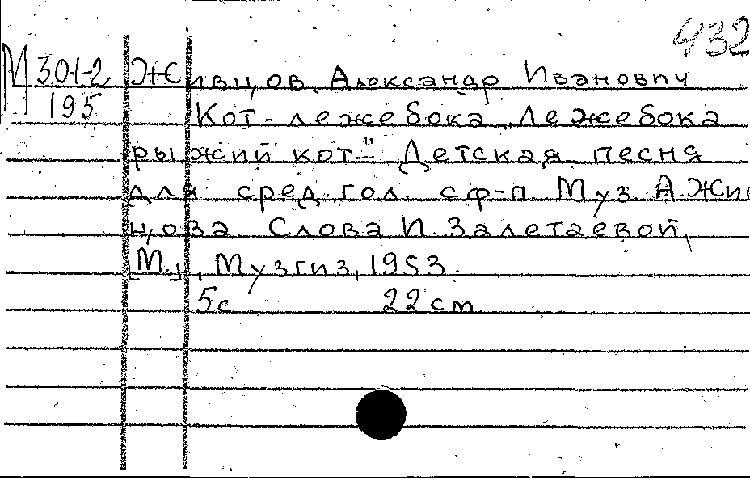 432
М 301-2 Живцов, Александр Иванович
195 Кот-лежебока „Лежебока
рыжий кот" Детская песня
для сред. гол. с ф-п Муз. А Жив
цова Слова И. Залетаевой,
[М.], Музгиз, 1953.
5с 22 см